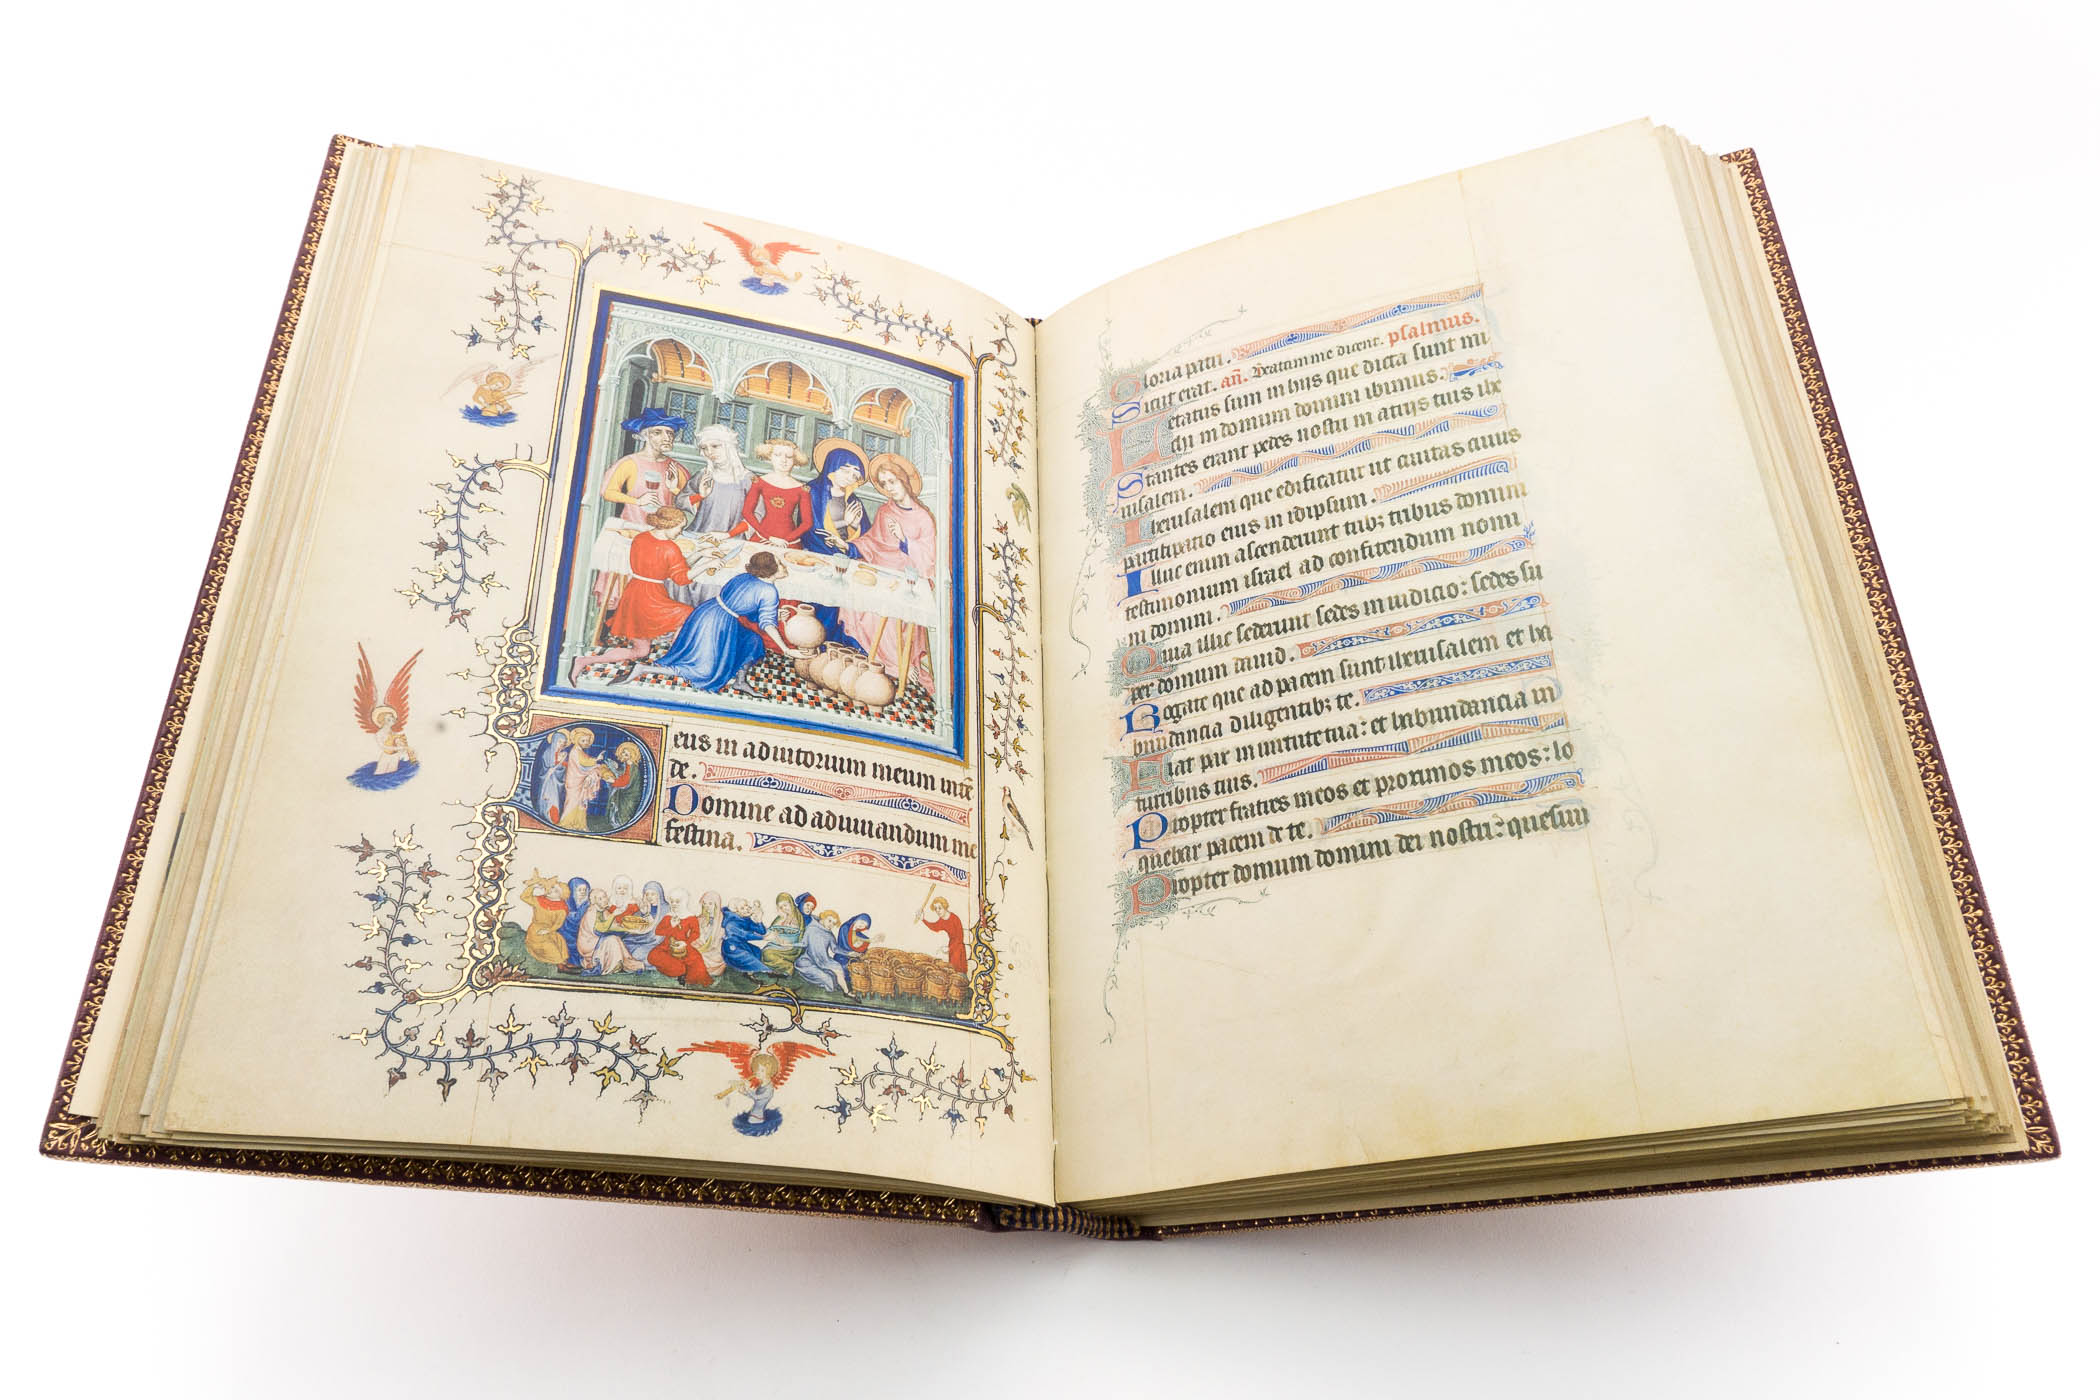 Deus in adiutorium meum intē
de.
Domine ad adiuuandum me
festina.
Gloria patri.
Sicut erat. añ. Beatam me dicent. psalmus.
Letatus sum in hiis que dicta sunt mi
chi in domum domini ibimus.
Stantes erant pedes nostri in atriis tuis ihe
rusalem.
Iherusalem que edificatur ut ciuitas cuius
participatio eius in idipsum.
Illuc enim ascenderunt tribꝫ tribus domini
testimonium israel ad confitendum nomi
ni domini.
Quia illic sederunt sedes in iudicio: sedes su
per domum dauid.
Rogate que ad pacem sunt iherusalem et ha
bundancia diligentibꝫ te.
Fiat pax in uirtute tua: et habundancia in
turribus tuis.
Propter fratres meos et proximos meos: lo
quebar pacem de te.
Propter domum domini dei nostri: quesiui